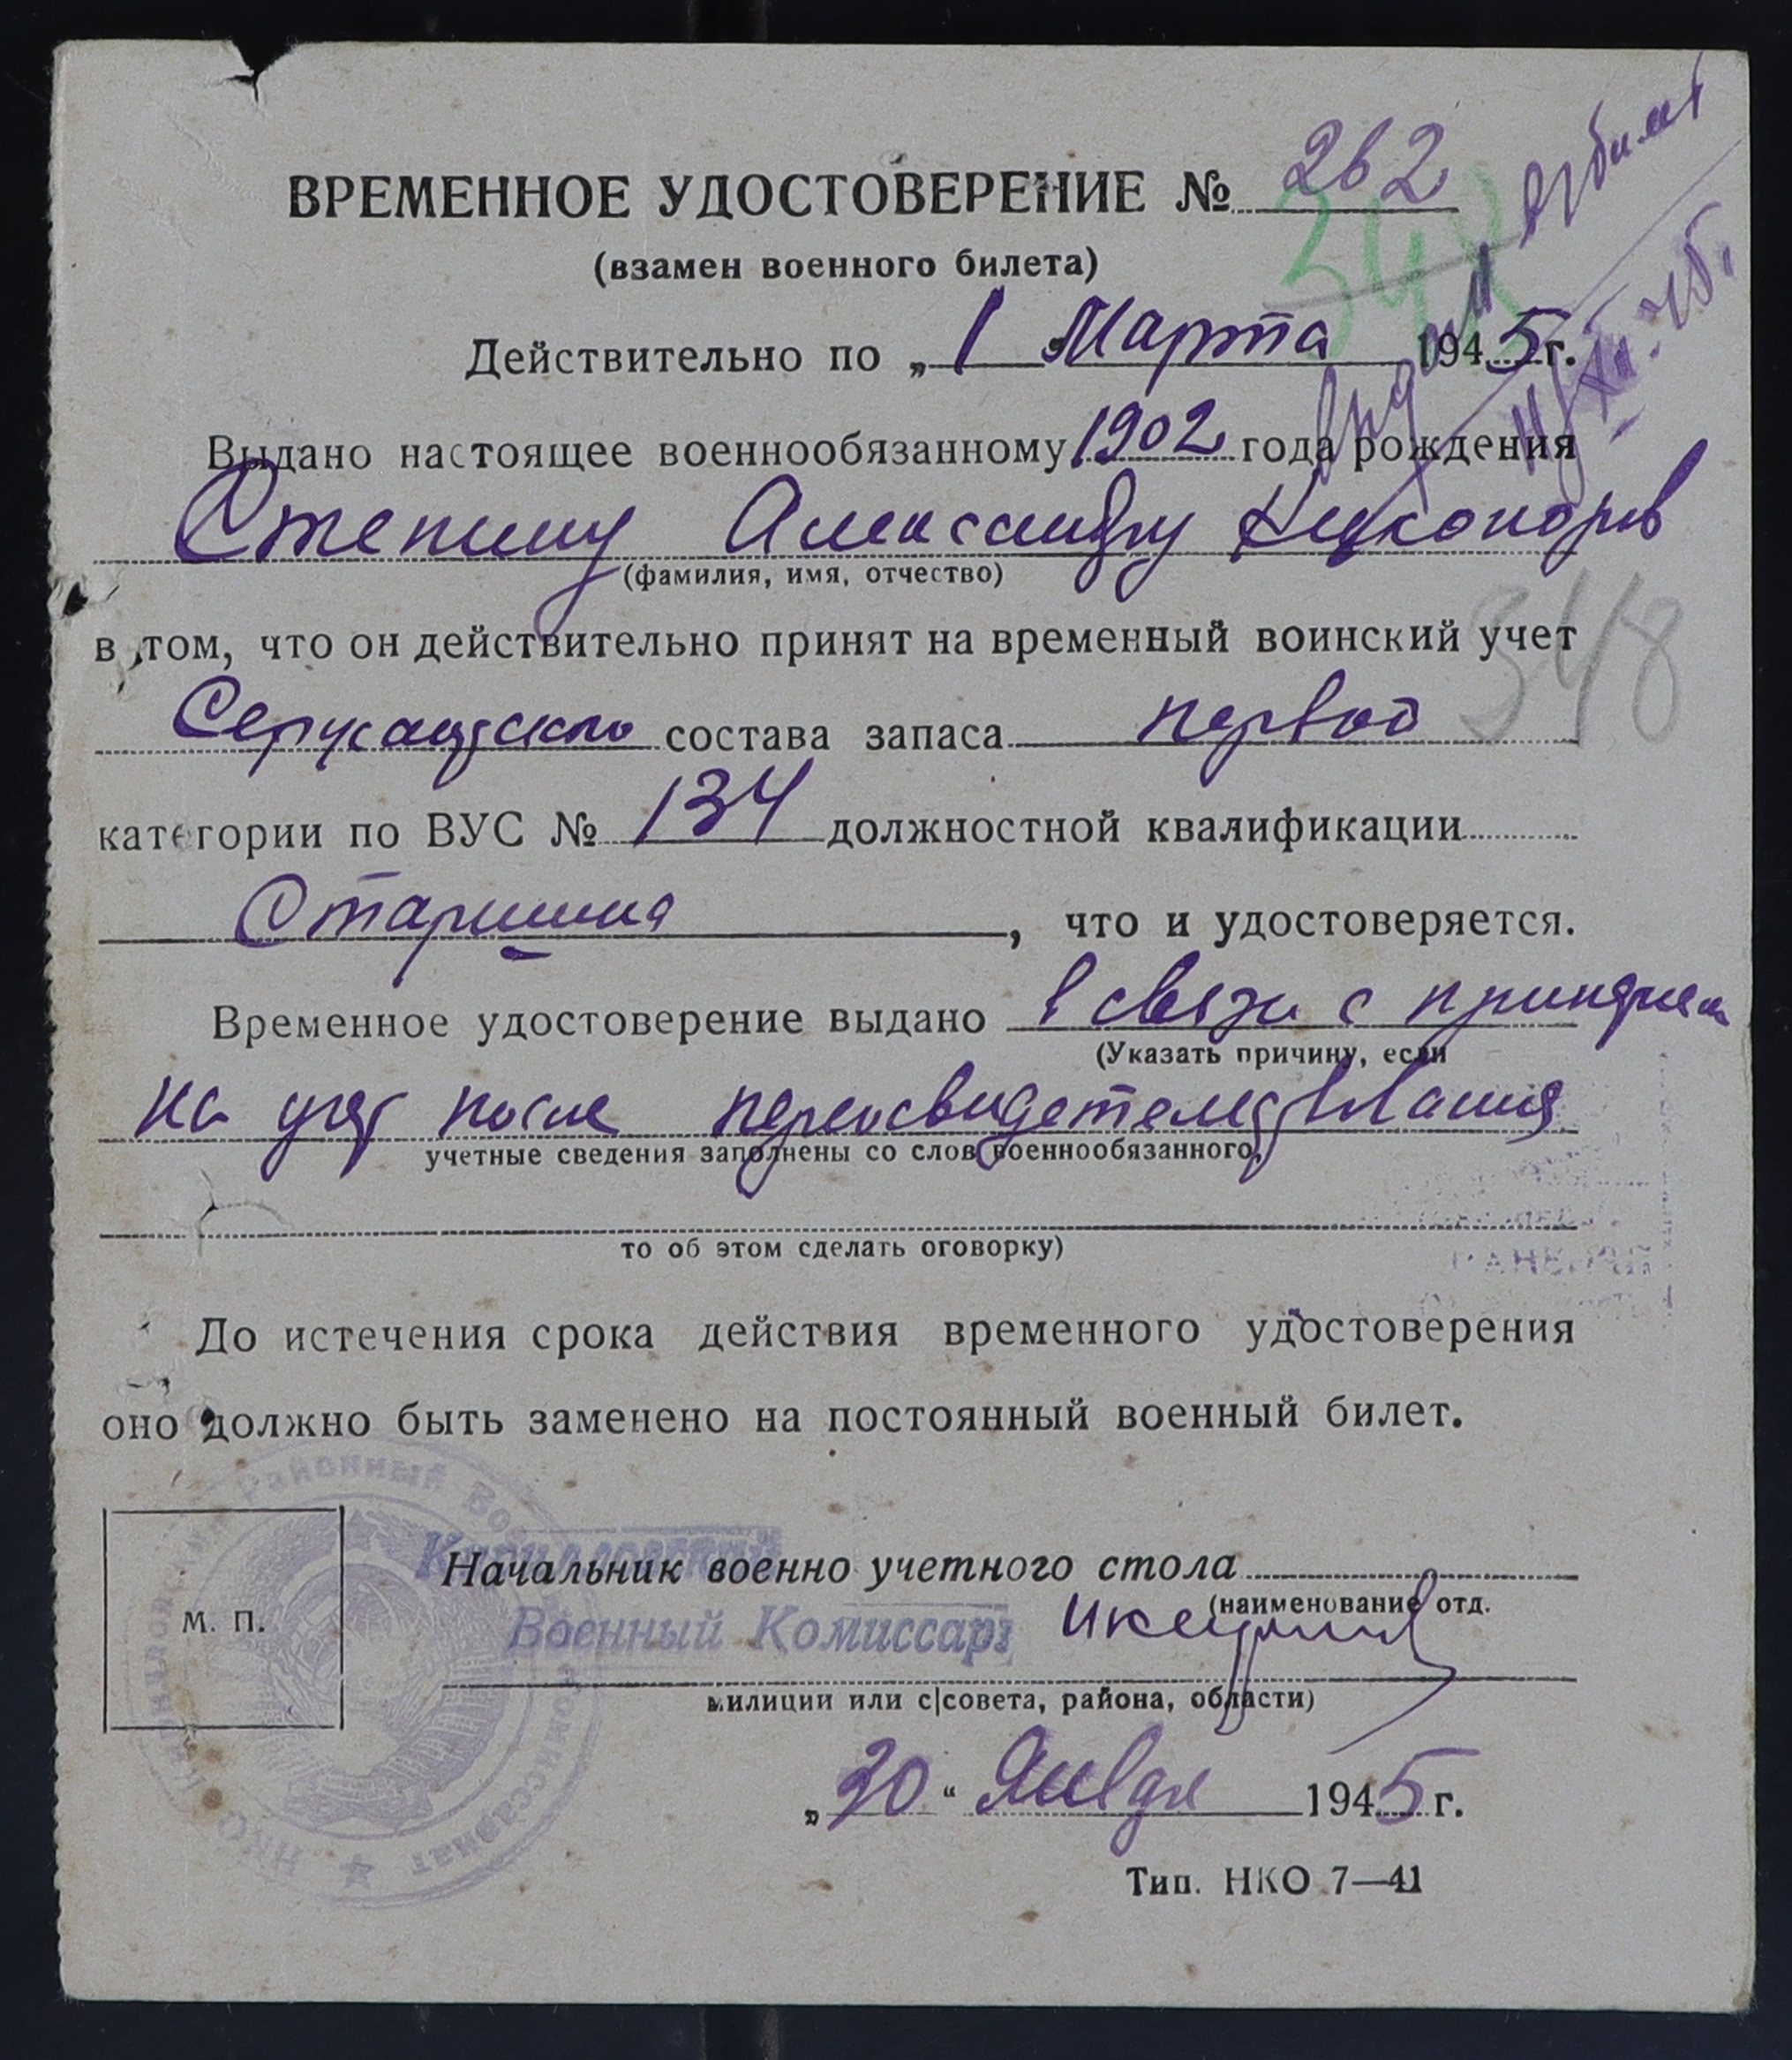 ВРЕМЕННОЕ УДОСТОВЕРЕНИЕ № 262
342
(взамен военного билета)
Действительно по „ 1 Марта 1945 г.
Выдано настоящее военнообязанному 1902 года рождения
Степину Александру Никоноров
(фамилия, имя, отчество)
в том, что он действительно принят на временный воинский учет
348
Сержантского состава запаса первой
категории по ВУС № 134 должностной квалификации
Старшина, что и удостоверяется.
Временное удостоверение выдано в связи с принятием
(Указать причину, если
на учет после переосвидетельствования
учетные сведения заполнены со слов военнообязанного,
то об этом сделать оговорку)
До истечения срока действия временного удостоверения
оно должно быть заменено на постоянный военный билет.
М. П.
Начальник военно учетного стола
(наименование отд.
Военный Комиссар
милиции или с|совета, района, области)
„ 30 “ Января 1945 г.
Районный Военный Комиссариат
НКО
Тип. НКО 7—41